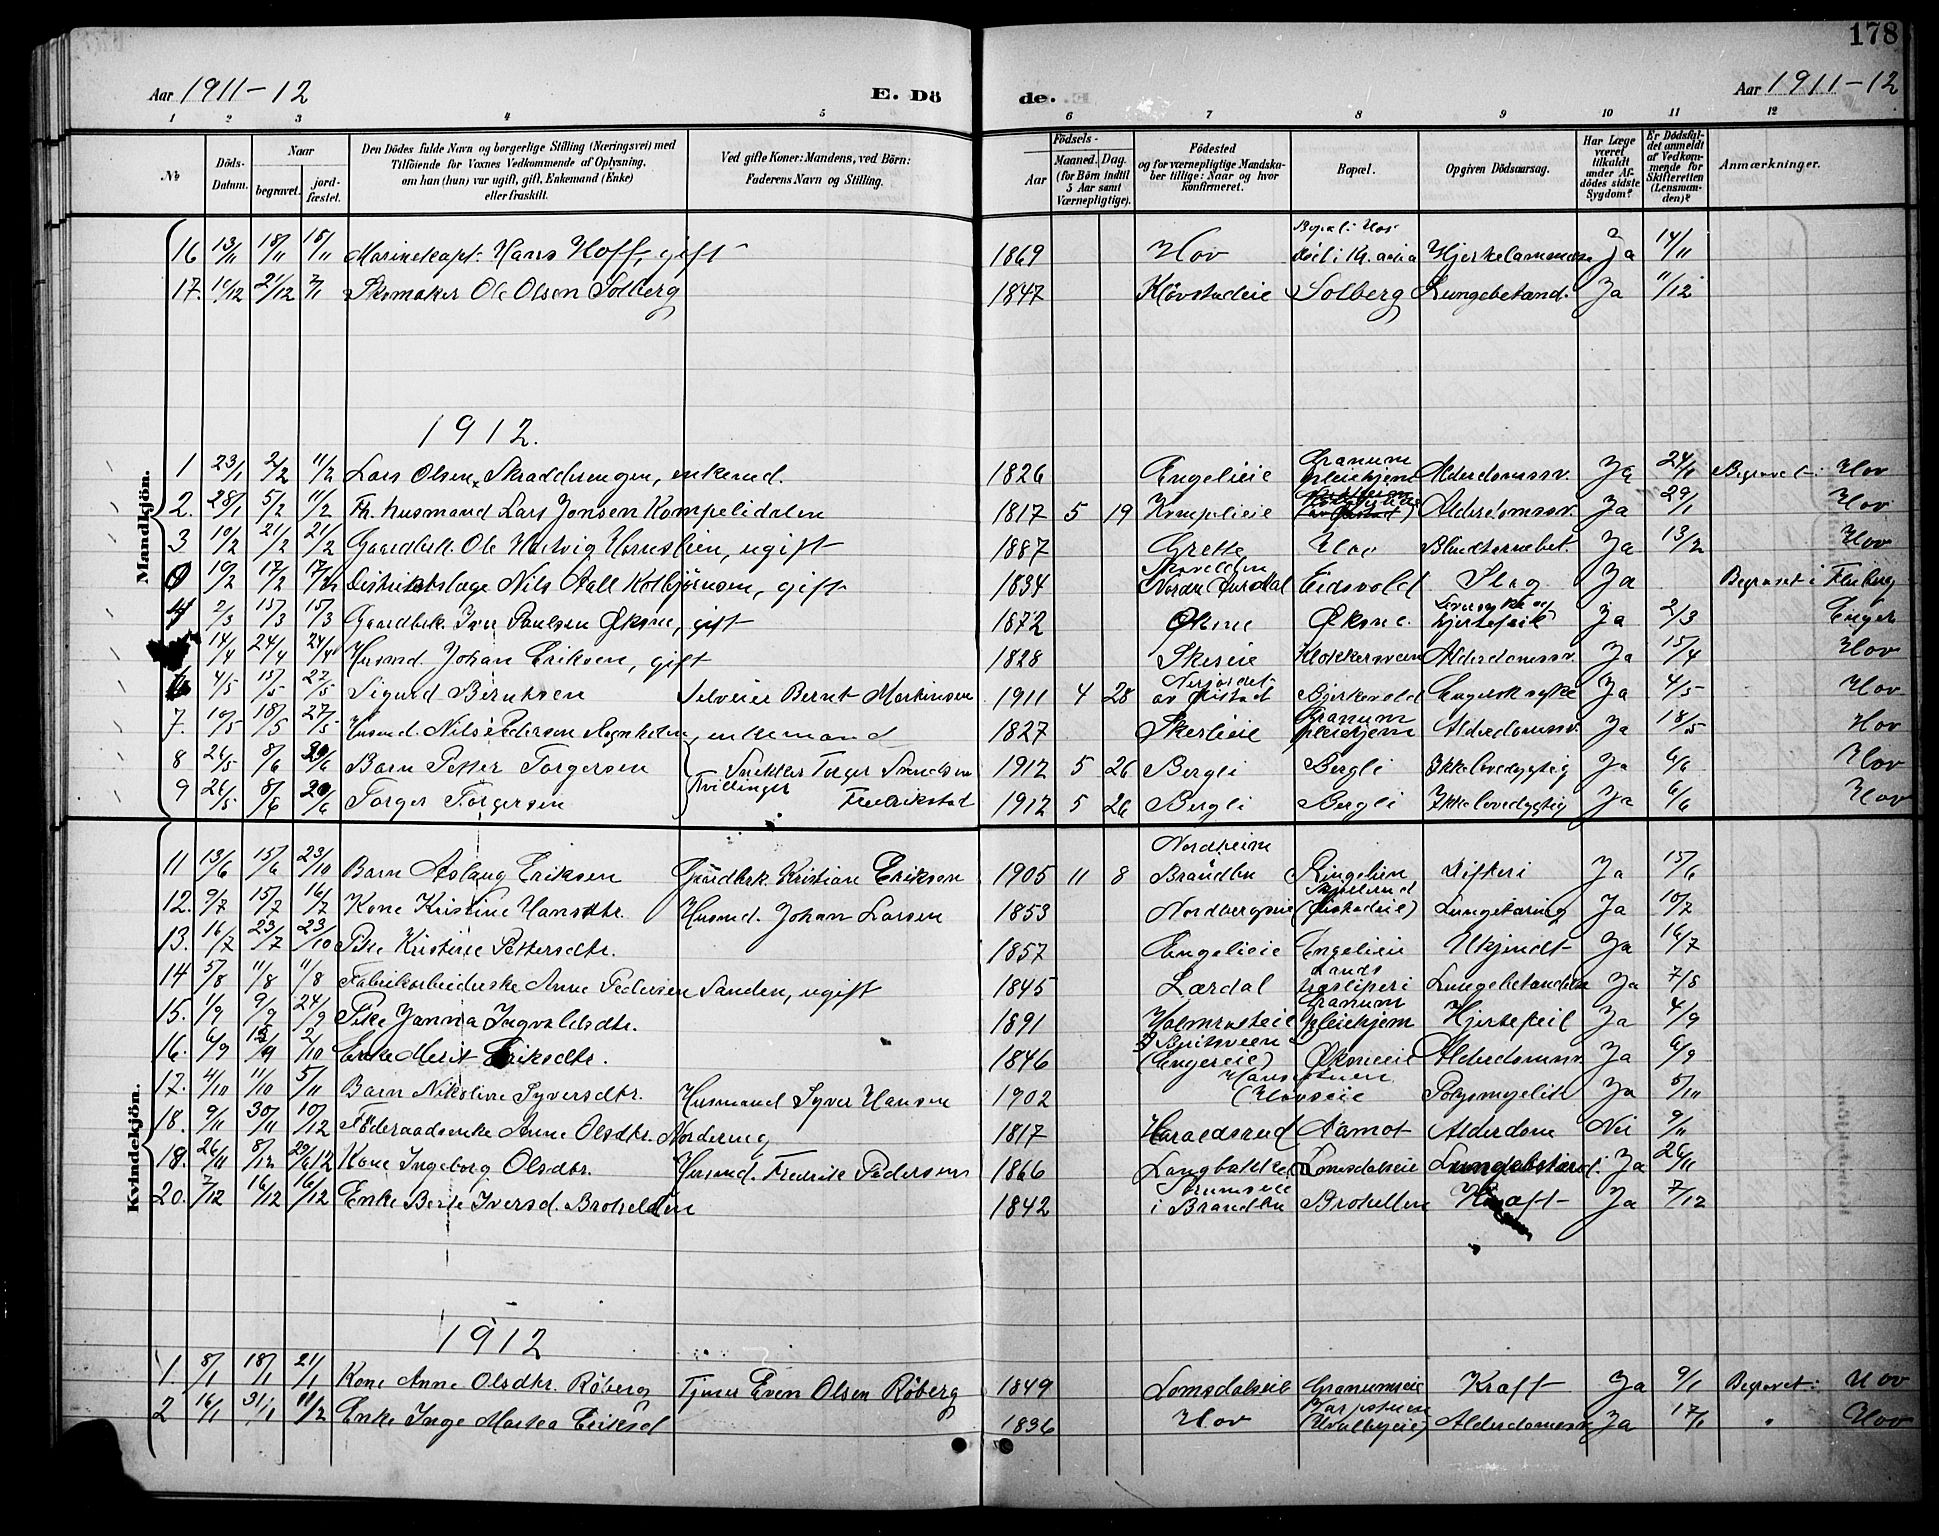 178
Aar 1911-12 E. Dö de. Aar 1911-12
1 2 3 4 5 6 7 8 9 10 11 12
No Döds-Datum. Naar begravet. jord-fæstet. Den Dödes fulde Navn og borgerlige Stilling (Næringsvei) med Tilföiende for Voxnes Vedkommende af Oplysning, om han (hun) var ugift, gift, Enkemand (Enke) eller fraskilt. Ved gifte Koner: Mandens, ved Börn: Faderens Navn og Stilling. Födsels- Aar Maaned. Dag. (for Börn indtil 5 Aar samt Værnepligtige). Födested og for værnepligtige Mandska-ber tillige: Naar og hvor konfirmeret. Bopæl. Opgiven Dödsaarsag. Har Læge været tilkaldt under Af-dödes sidste Sygdom? Er Dödsfal-det anmeldt af Vedkom-mende for Skifteretten (Lensman-den)? Anmærkninger.
Mandkjön.
16 13/11 18/11 18/11 Marinekapt. Hans Hoff, gift 1869 Hov Ja 14/11
17. 10/12 21/12 Skomaker Ole Olsen Solberg 1847 Klövstadeie Solberg Lungebetænd. Ja 11/12
1912.
1 23/1 2/2 11/2 Lars Olsen Skrædderengen, enkemd. 1826 Engelieie Granum pleiehjem Alderdomssv. Ja 24/1 Begravet i Hov
2. 28/1 5/2 11/2 Fh. husmand Lars Jonsen Kompelidalen 1817 5 19 Kompelieie Alderdomssv. Ja 29/1 Hov
3 10/2 21/2 21/2 Gaardbk. Ole Hartvig Hovslien, ugift 1887 Grette Hov Blindtarmbet. Ja 13/2 Hov
10/2 17/2 17/2 Distriktslæge Nils Aall Kolbjørnsen, gift 1834 Nordre Aurdal Eidsvold Slag Ja Begravet i Fluberg
4 2/3 15/3 15/3 Gaardbrk. Iver Paulsen Øksne, gift 1872 Øksne Øksne Leversyke og hjertefeil Ja 2/3 Enger
14/4 24/4 24/4 Husmd. Johan Eriksen, gift 1828 Skeseie Klokkersveen Alderdomssv. Ja 15/4 Hov
6 4/5 15/5 27/5 Sigurd Berntsen Selveier Bernt Martinsen 1911 4 28 Bjerkevold Engelsk syke Ja 4/5 Hov
7. 10/5 18/5 27/5 Husmd. Nils Pedersen, enkemand 1827 Skeslieie Granum pleiehjem Alderdomssv. Ja 18/5 Hov
8 26/5 8/6 Barn Petter Torgersen Snekker Torger 1912 5 26 Bergli Bergli Ikke levedygtig Ja 6/6 Hov
9 26/5 8/6 Torger Torgersen Tvillinger Fredrikstad 1912 5 26 Bergli Bergli Ikke levedygtig Ja 6/6 Hov
Kvindekjön.
11 13/6 15/6 23/10 Barn Aslaug Eriksen Gaardbrk. Kristian Eriksen 1905 11 8 Nordheim Brandbu Ringelien Difteri Ja 15/6
12. 9/7 15/7 16/7 Kone Kristine Hansdtr. Husmd. Johan Larsen 1853 Nordbergseie Lungetæring Ja 10/7
13. 16/7 23/7 23/10 Pike Kristine Pettersdtr. 1857 Engelieie Engelieie Ukjendt Ja 16/7
14 5/8 11/8 11/8 Fabrikarbeiderske Anne Pedersen Sanden, ugift 1845 Lærdal Lands træsliperi Lungebetændelse Ja 7/8
15. 1/9 9/9 24/9 Pike Janna Ingvaldsdtr. 1891 Granum Pleiehjem Hjertefeil Ja 4/9
16. 6/9 2/10 Enke Merit Eriksdtr. 1846 (Engereie) Øksneeie Alderdomssv. Ja 6/9
17. 4/10 11/10 5/11 Barn Nikoline Syversdtr. Husmand Syver Hansen 1902 Hansstuen (Hovseie Polyomyelit Ja 5/11
18. 9/11 30/11 10/12 Föderaadsenke Anne Olsdtr. Nordereng 1817 Haraldsrud Aamot Alderdom Nei 9/11
18. 26/11 8/12 Kone Ingeborg Olsdtr. Husmd. Fredrik Pedersen 1866 Langbakken Lomsdalseie Lungebetænd. Ja 26/11
20. 7/12 16/12 16/12 Enke Berte Iversd. Brohellen 1842 i Brandbu Brohellen Kræft Ja 7/12
1912
1. 8/1 18/1 21/1 Kone Anne Olsdtr. Røberg Tjener Even Olsen Røberg 1849 Lomsdalseie Granumseie Kræft Ja 9/1 Begravet i Hov
2 16/1 31/1 11/2 Enke Inge Martea Eriksd 1836 Hov (Hvalbyeie) Alderdomssv. Ja 17/1 " Hov